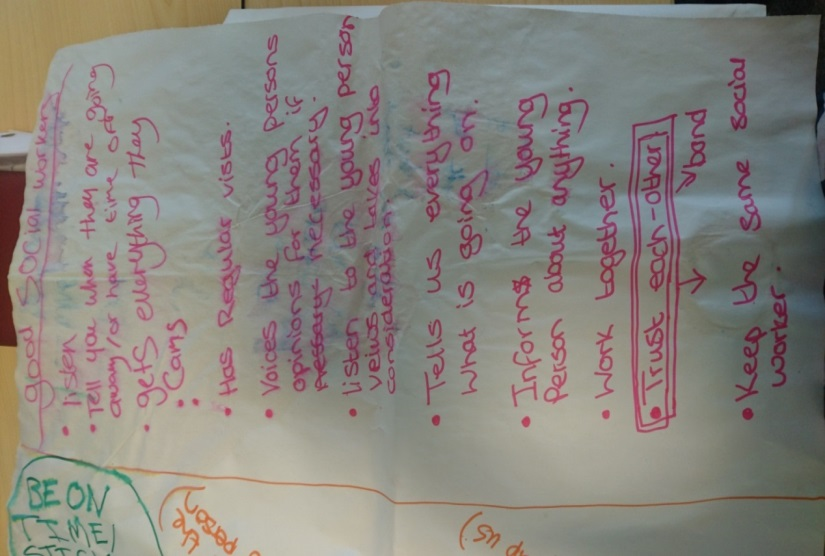 good social workers
• listen
• Tell you when they are going
away/or have time off
• gets everything they
• Cams
•
• Has Regular vists.
• Voices the young persons
opinions for them if
necessary.
• listen to the young person
veiws and takes into
consideration
• Tells us everything
what is going on.
• Informs the young
Person about anything.
• Work together.
• Trust each-other!
bond
• Keep the same social
worker.
BE ON
TIME!
the
person)
up us)